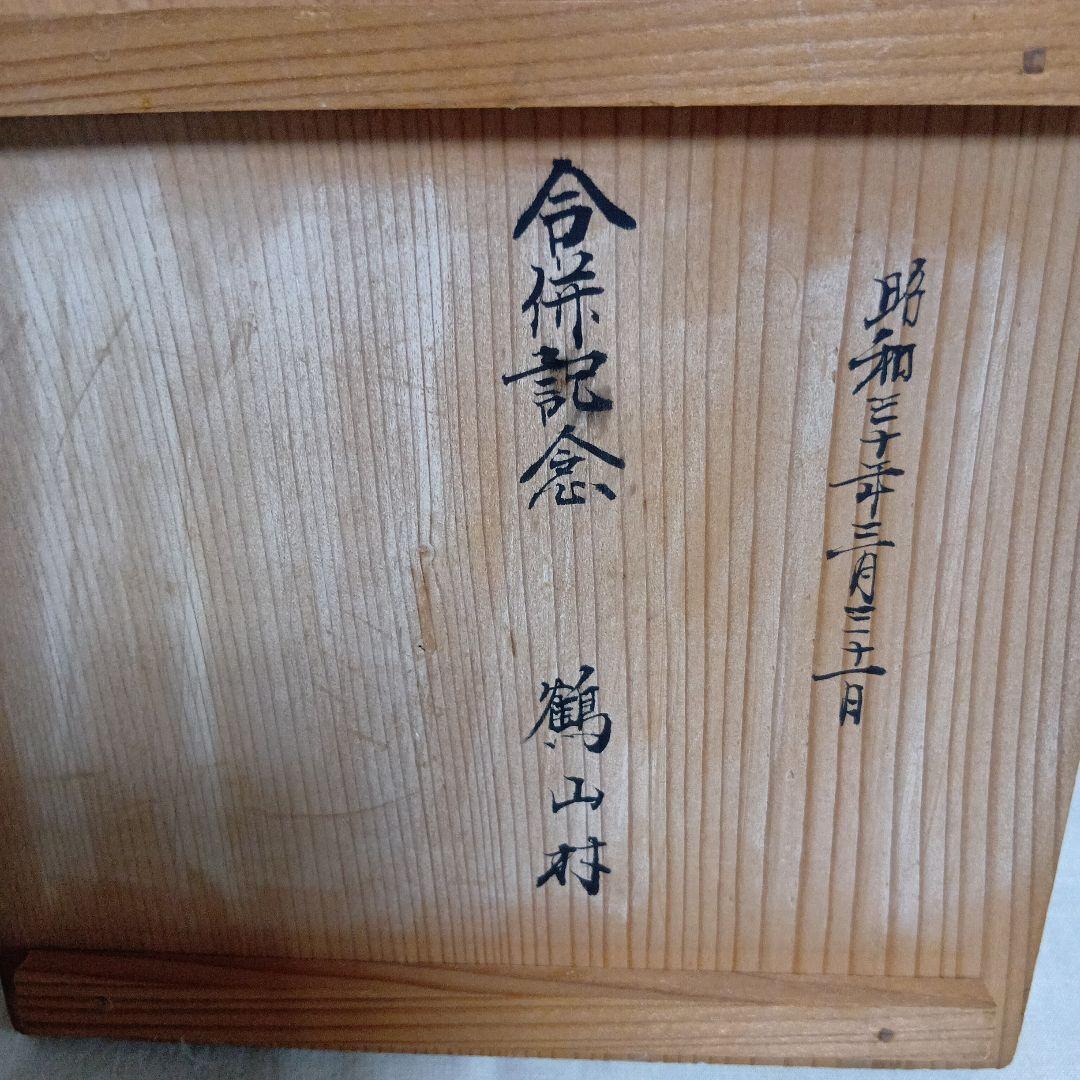 昭和三十年三月三十一日
合併記念 鶴山村